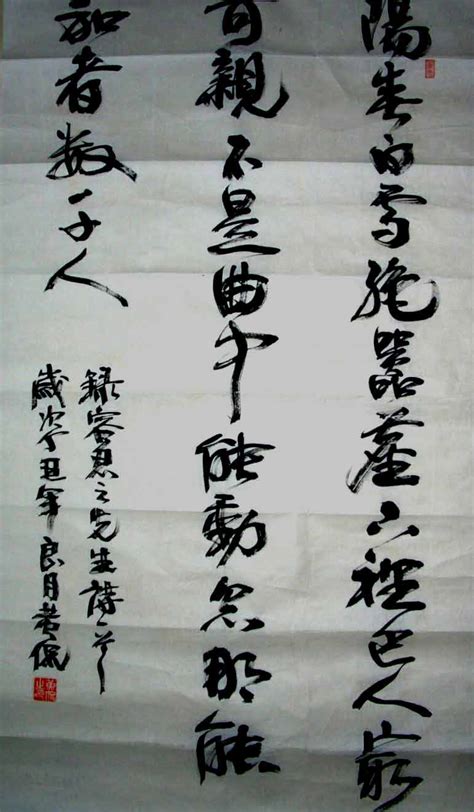 陽春白雪絶囂塵下裡巴人最
可親不是曲中能動念那能
和者數千人
錄容思之先生詩一首
歲次丁丑年良月侃